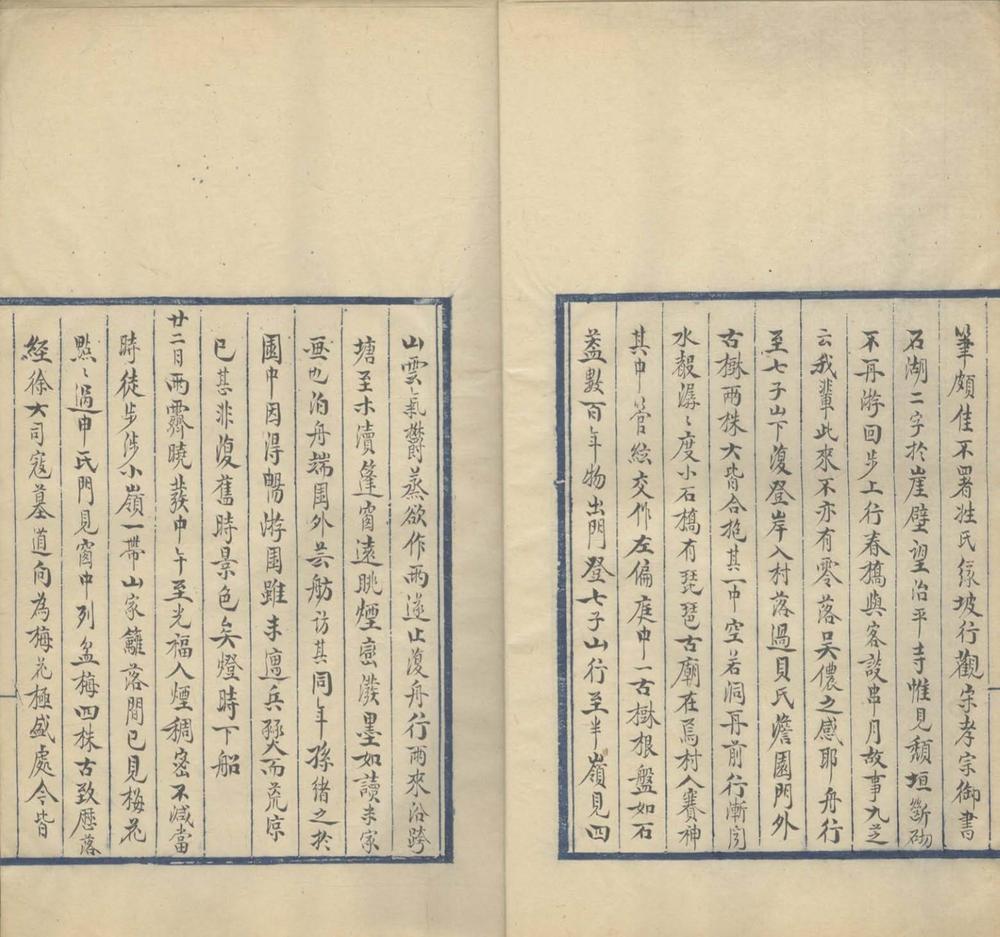 筆頗佳不署姓氏緣坡行觀宋孝宗御書
石湖二字於崖壁望治平寺惟見頹垣斷砌
不再游回步上行春橋與客談串月故事九芝
云我輩此來不亦有零落吴儂之感耶舟行
至七子山下復登岸入村落過貝氏澹園門外
古樹兩株大皆合抱其一中空若洞再前行漸聞
水聲潺〻度小石橋有琵琶古廟在焉村人賽神
其中管絃交作左偏庭中一古樹根盤如石
葢數百年物出門登七子山行至半嶺見四
山雲氣欝蒸欲作雨遂止復舟行雨來沿跨
塘至木瀆篷窗遠眺煙巒潑墨如讀米家
畫也泊舟端園外芸舫訪其同年孫緒之於
園中因得暢游園雖未遭兵燹而荒涼
已甚非復舊時景色矣燈時下船
廿二日雨霽曉發中午至光福人煙稠密不減當
時徒步涉小嶺一帶山家籬落間已見梅花
點〻過申氏門見窗中列盆梅四株古致歷落
經徐大司寇墓道向為梅花極盛處今皆